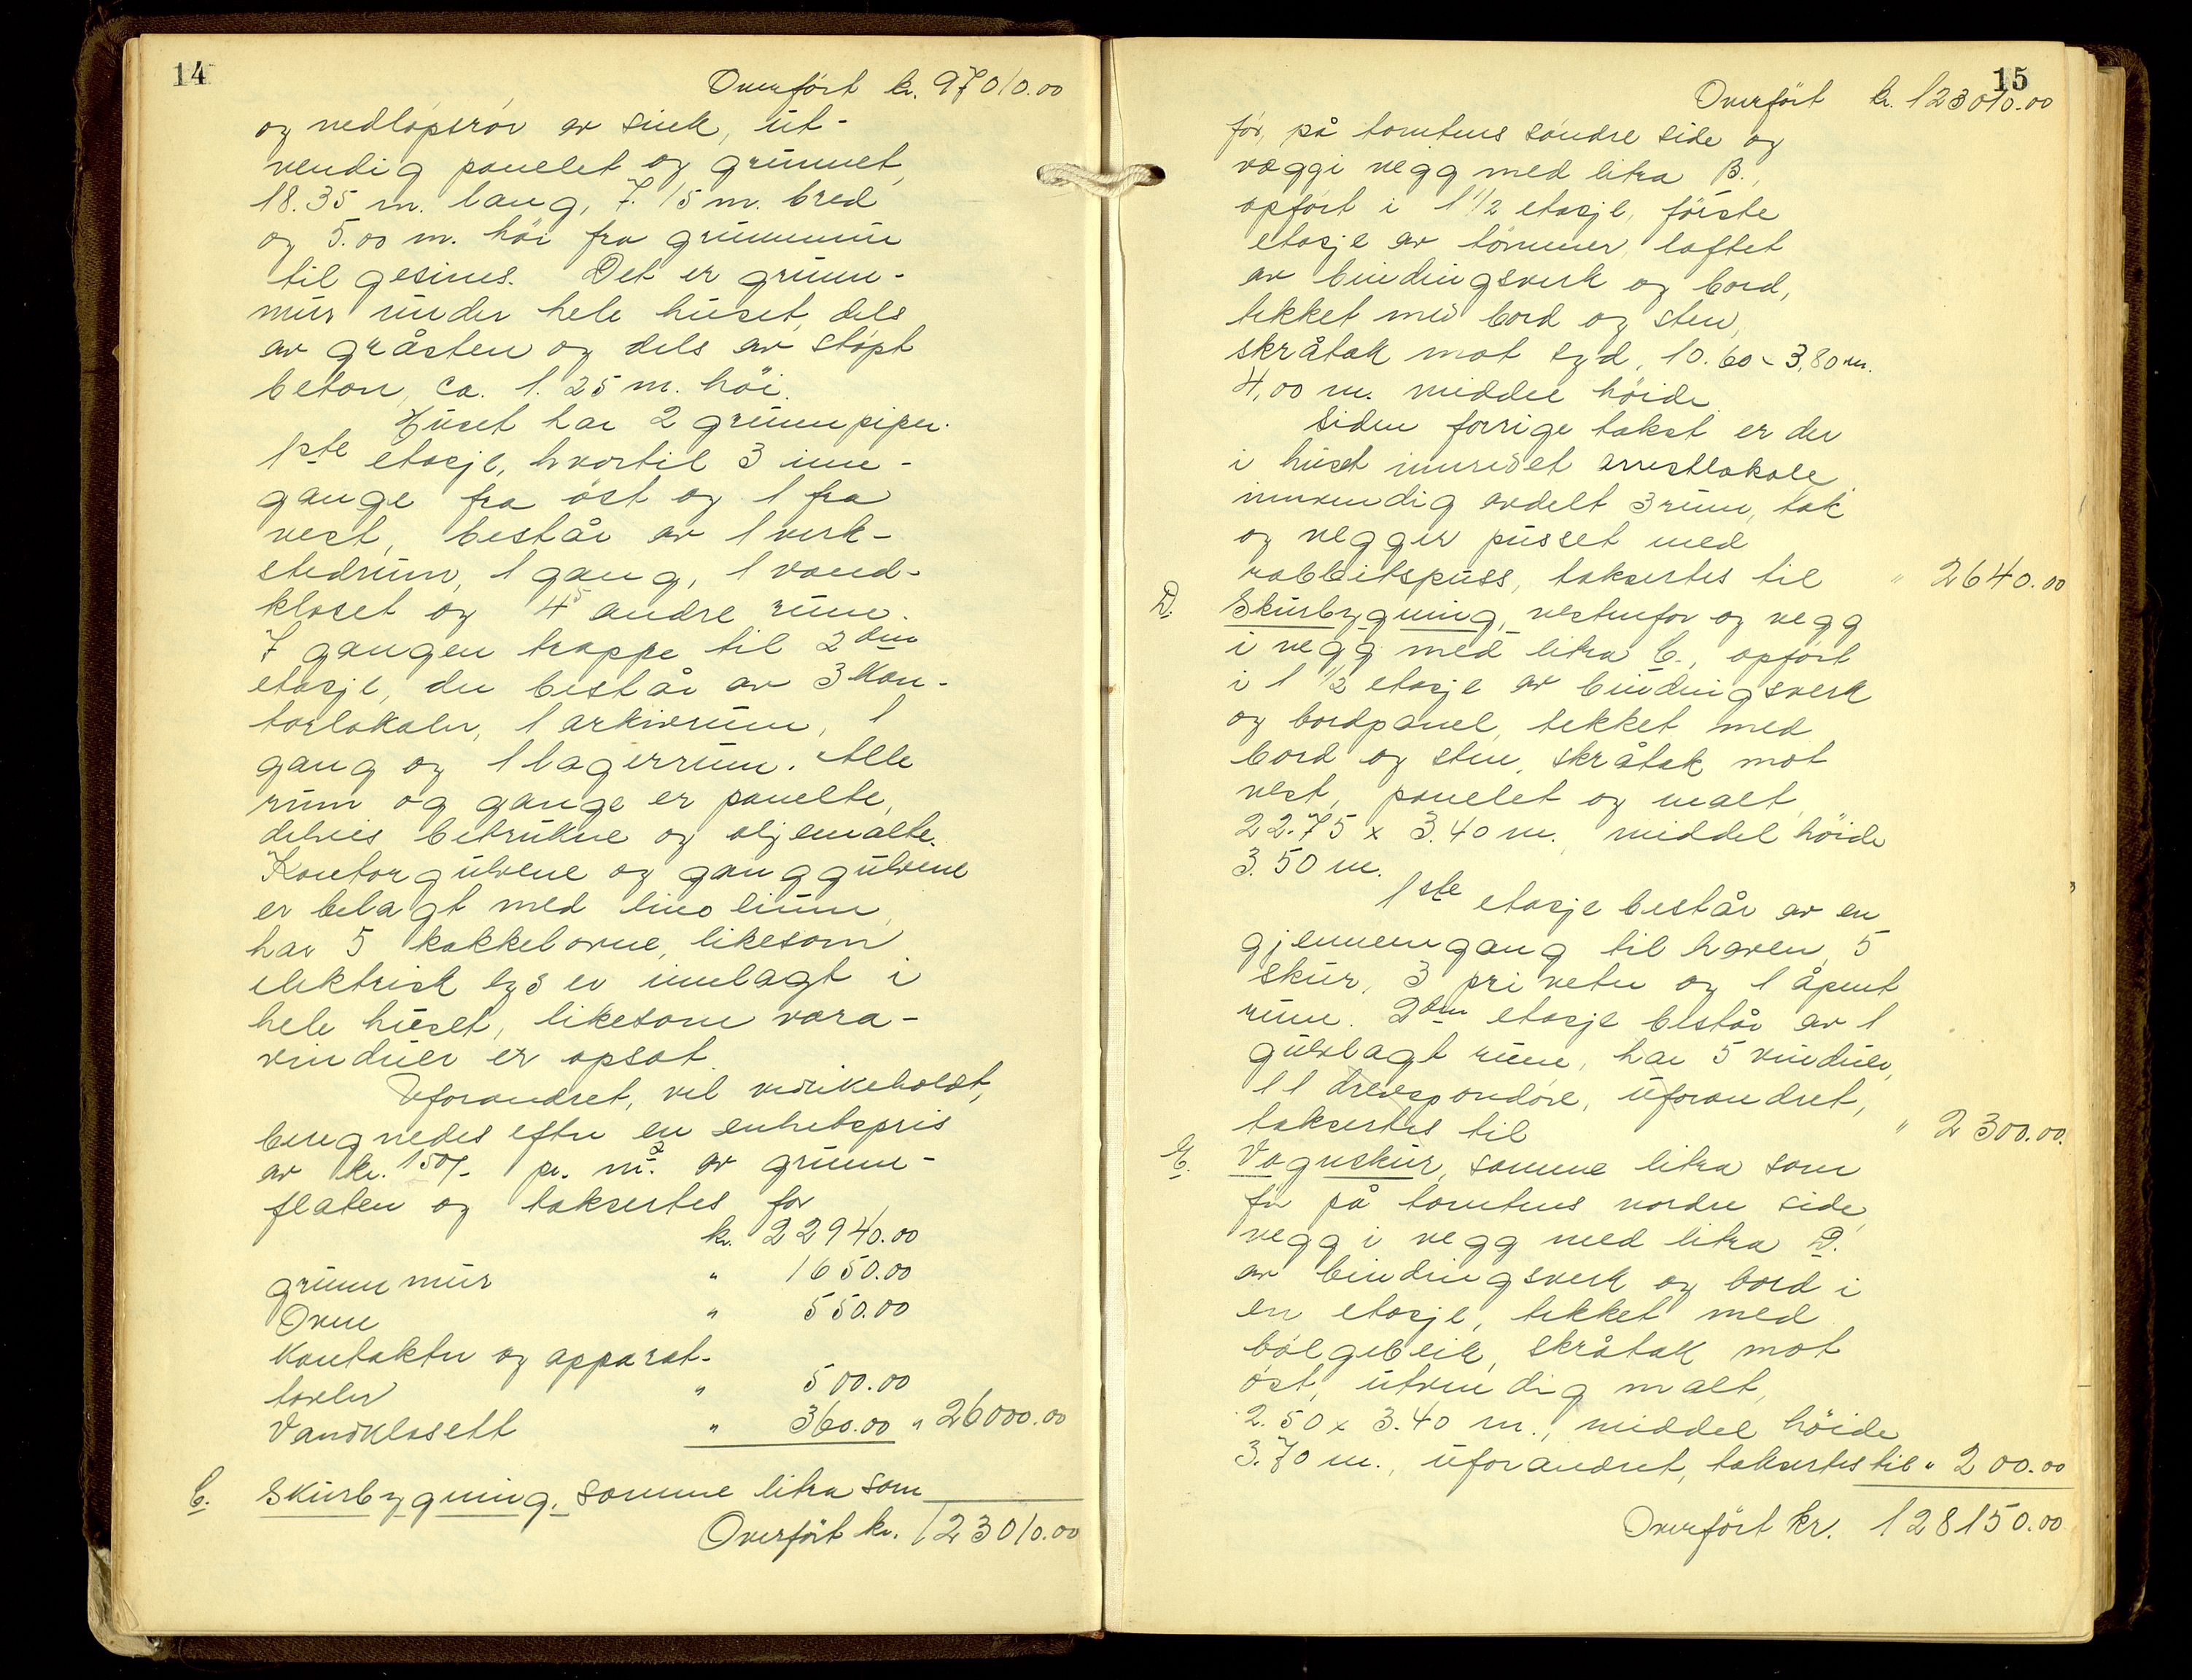 14
Overført kr. 97010.00
og nedløpsrør av sink, ut-
vendig panelet og grunnet,
18.35 m. lang, 7.15 m. bred
og 5.00 m. höi fra grunnmur
til gesims. Det er grunn-
mur under hele huset, dels
av gråsten og dels av støpt
beton, ca. 1.25 m. höi.
Huset har 2 grunnpiper.
1ste etasje, hvortil 3 inn-
gange fra øst og 1 fra
vest, består av 1 verk-
stedrum, 1 gang, 1 vand-
kloset og 4 5 andre rum.
I gangen trappe til 2den
etasje, der består av 3 kon-
torlokaler, 1 arkivrum, 1
gang og 1 lagerrum. Alle
rum og gange er panelte,
delvis betrukne og oljemalte.
Kontorgulvene og ganggulvene
er belagt med linoleum,
har 5 kakkelovne, likesom
elektrisk lys er innlagt i
hele huset, likesom vara-
vinduer er opsat.
Uforandret, vel vedlikeholdt,
beregnedes efter en enhetspris
av kr. 150/- pr. m² av grunn-
flaten og taksertes for
kr. 22940.00
grunnmur " 1650.00
Ovne " 550.00
Kontakter og apparat-
tavler " 500.00
Vandklosett " 360.00 " 26000.00
C. Skurbygning, samme litra som
Overført kr. 123010.00
15
Overført kr. 123010.00
før, på tomtens søndre side og
væggi vegg med litra B.,
opført i 1 1/2 etasje, første
etasje av tømmer, loftet
av bindingsverk og bord,
tekket med bord og sten,
skråtak mot syd, 10.60 x 3,80 m.
4,00 m. middel höide.
Siden forrige takst er der
i huset innredet arrestlokale,
innvendig avdelt 3 rum, tak
og vegger pusset med
rabbitspuss, taksertes til " 2640.00
D. Skurbygning, vestenfor og vegg
i vegg med litra C., opført
i 1 1/2 etasje av bindingsverk
og bordpanel, tekket med
bord og sten, skråtak mot
vest, panelet og malt,
22.75 x 3.40 m., middel höide
3.50 m.
1ste etasje består av en
gjennemgang til haven, 5
skur, 3 priveter og 1 åpent
rum. 2den etasje består av 1
gulvlagt rum, har 5 vinduer,
11 trevespondøre, uforandret,
taksertes til " 2300.00
E. Vognskur, samme litra som
før på tomtens nordre side,
vegg i vegg med litra D.
av bindingsverk og bord i
en etasje, tekket med
bølgeblik, skråtak mot
øst, utvendig malt,
2.50 x 3.40 m., middel höide
3.70 m., uforandret, taksertes til " 200.00
Overført kr. 128150.00